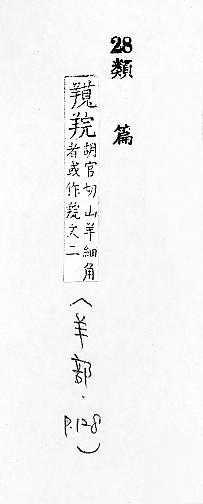 28
類篇
羱羦胡官切山羊細角
者或作羦文二
(羊部.
P.128)